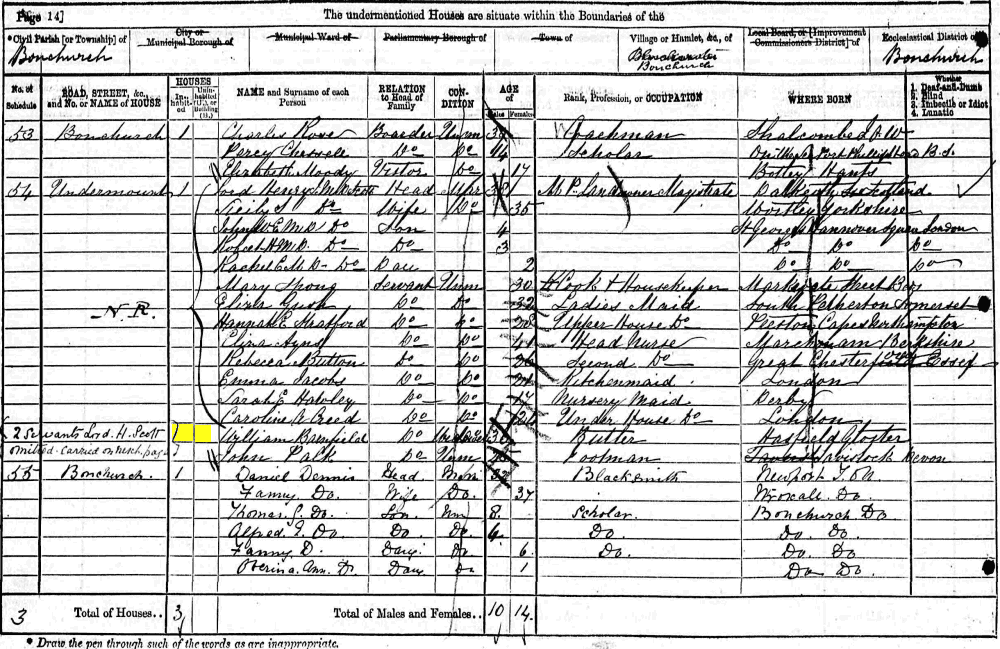 Page 14] The undermentioned Houses are situate within the Boundaries of the
*Civil Parish [or Township] of City or Municipal Borough of Municipal Ward of Parliamentary Borough of Town of Village or Hamlet, &c., of Local Board, or [Improvement Commissioners District] of Ecclesiastical District of
Bonchurch Bonchurch Bonchurch
No. of Schedule ROAD, STREET, &c., and No. or NAME of HOUSE HOUSES In-habited Unin-habited (U.), or Building (B.) NAME and Surname of each Person RELATION to Head of Family CON-DITION AGE of Males Females Rank, Profession, or OCCUPATION WHERE BORN Whether 1. Deaf-and-Dumb 2. Blind 3. Imbecile or Idiot 4. Lunatic
53 Bonchurch 1 Charles Rose Boarder Unm Coachman Shalcombe I.W
Percy Do Do 14 Scholar Port Phillip
Elizabeth Moody Visitor Do 17 Botley Hants
54 Undermount 1 Lord Henry Head Mar 38 M.P. Landowner Magistrate Dalkeith Scotland
Do Wife Do 35 Wortley Yorkshire
Do Son 4 St Georges Hannover Square London
Do Do 3 Do Do Do
Rachel E M D Do Dau 2 Do Do Do
Mary Spong Servant Unm 30 Cook & Housekeeper Market Street
Eliza Gush Do Do 32 Ladies Maid South Petherton Somerset
N.R. Hannah E Do Do Upper House Do Northampton
Do Do Head Nurse Marcham Berkshire
Rebecca Button Do Do 26 Second Do Great Chesterford Essex
Emma Jacobs Do Do Kitchenmaid London
Sarah E Hawley Do Do 17 Nursery Maid Derby
Caroline A Breed Do Do Under House Do London
2 Servants Lord H. Scott William Do Butler Hasfield Gloster
omitted carried on next page John Palk Do Unm Footman Tavistock Devon
55 Bonchurch 1 Daniel Dennis Head Blacksmith Newport I.W
Fanny Do. Wife Do. 37 Wroxall Do.
Thomas G. Do. Son. Un 8. Scholar. Bonchurch Do
Alfred J. Do. Do Do. Do. Do. Do.
Fanny D. Daur. Do 6. Do. Do. Do
Ann. D. Daur Do 1 Do Do.
3 Total of Houses.. 3 Total of Males and Females.. 10 14
* Draw the pen through such of the words as are inappropriate.